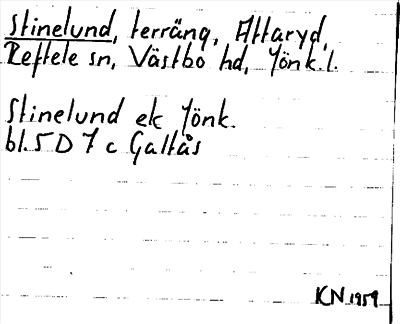 Stinelund, terräng, Attaryd,
Reftele sn, Västbo hd, Jönk.l.
Stinelund ek Jönk.
bl. 5 D 7 c Galtås
KN 1959